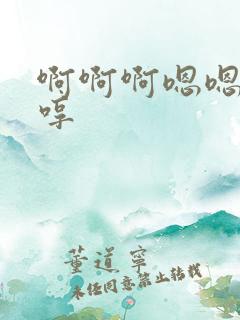 啊啊啊嗯嗯
哼
董道宁
未经同意禁止转载